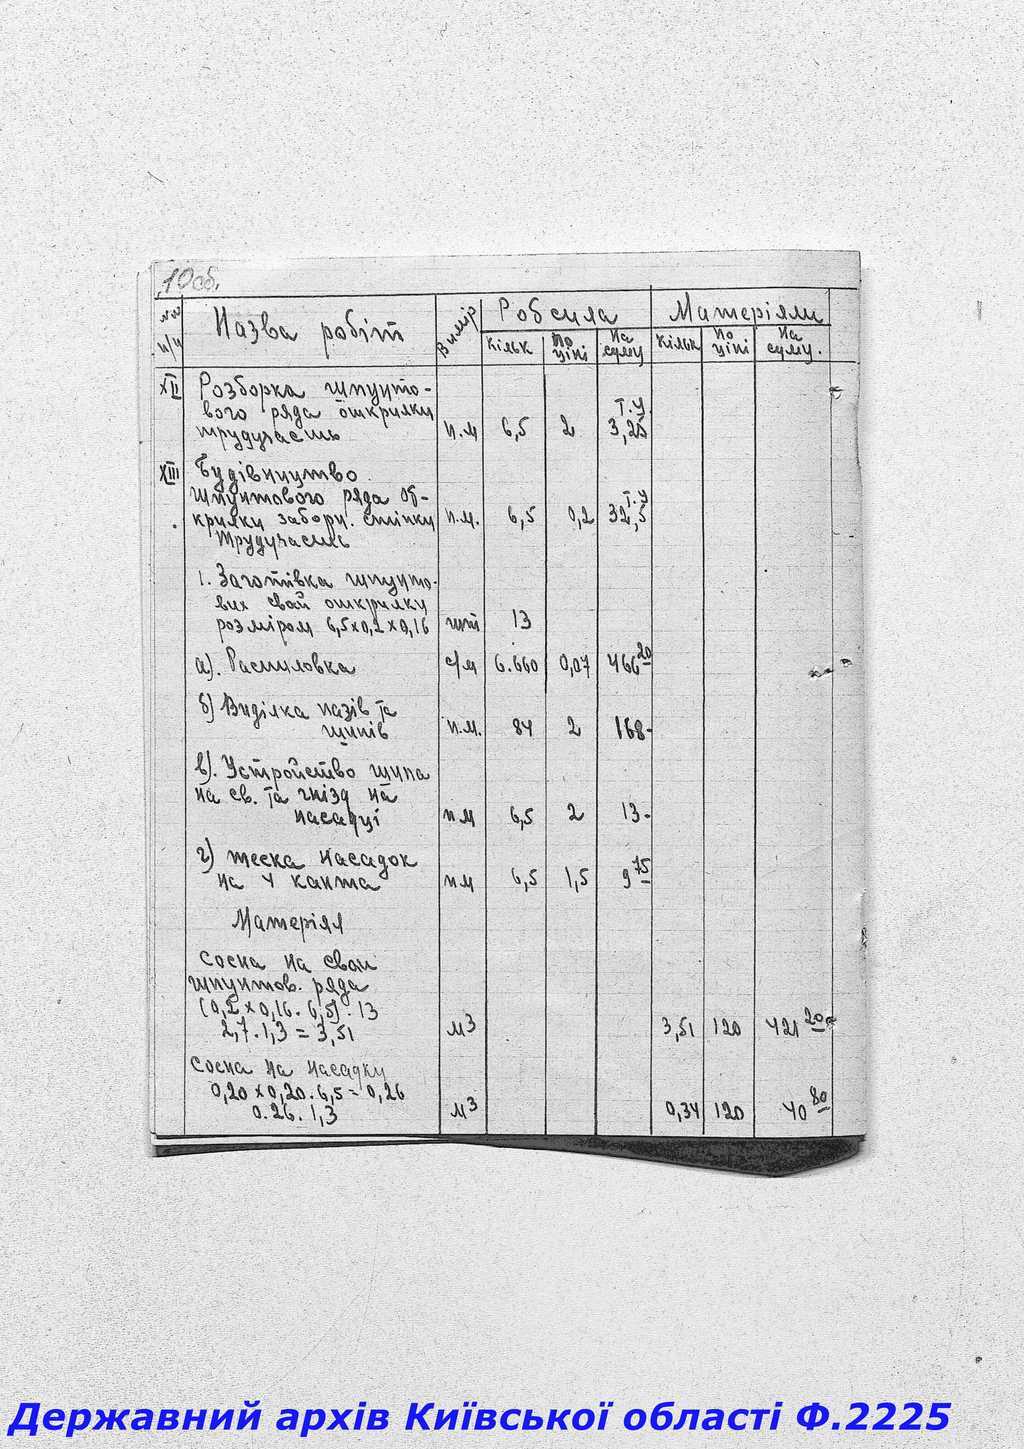 10 об.
№№ п/п Назва робіт Вимір Робсила Матеріяли
кільк по ціні на суму кільк по ціні на суму.
XII Розборка шпунто-
вого ряда ошкрилку Т.У
трудучасть п.м 6,5 2 3,25
XIII Будівництво
шпунтового ряда об- Т.У
крилку забори. стінки п.м. 6,5 0,2 32,5
трудучасть
1. Заготівка шпунто-
вих свай ошкрилку
розміром 6,5х0,2х0,16 шт 13
а). Распиловка с/м 6.660 0,07 466 20
б) Виділка пазів та
щипів п.м. 84 2 168-
в). Устройство шипа
на св. та гнізд на
насадці пм 6,5 2 13-
г) теска насадок
на 4 канта пм 6,5 1,5 9 75
Матеріял
Сосна на сваи
шпунтов. ряда
(0,2 х 0,16. 6,5) . 13
2,7 . 1,3 = 3,51 м3 3,51 120 421 20
Сосна на насадку
0,20 х 0,20 . 6,5 = 0,26
0.26. 1,3 м3 0,34 120 40 80
Державний архів Київської області Ф.2225